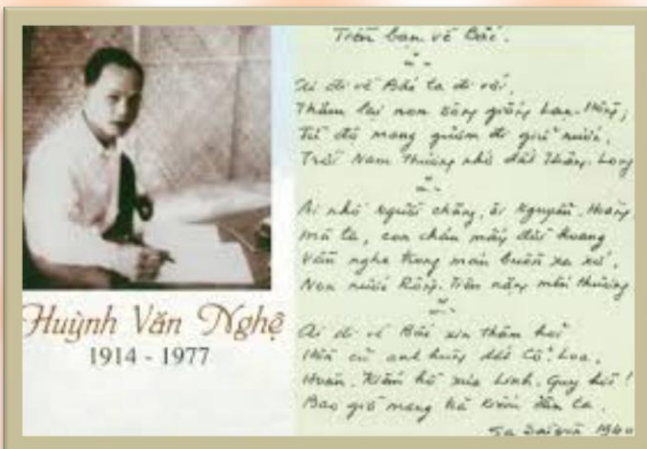 Huỳnh Văn Nghệ
1914 - 1977
Tiễn bạn về Bắc.
Ai đi về Bắc ta đi với,
Thăm lại non sông giống Lạc-Hồng;
Từ độ mang gươm đi giữ nước,
Trời Nam thương nhớ đất Thăng-Long
Ai nhớ người chăng, ôi Nguyễn-Hoàng
Mà ta, con cháu mấy đời hoang
Vẫn nghe trong máu buồn xa xứ,
Non nước Rồng-Tiên nặng mến thương
Ai đi về Bắc xin thăm hỏi
Hồn cũ anh hùng đất Cổ-Loa,
Hoàn-Kiếm hồ xưa Linh-Quy hỡi!
Bao giờ mang trả kiếm dân ta.
Ga Saigon 1940